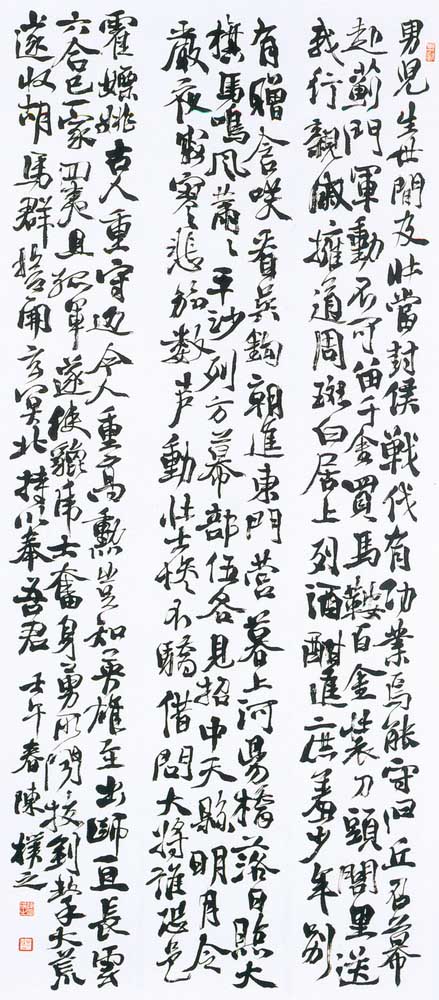 男兒生世間及壯當封侯戦伐有功業焉能守旧丘召募
赴薊門軍動不可留千金買馬鞍百金装刀頭閭里送
我行親戚擁道周斑白居上列酒酣進庶羞少年別
有贈含咲看吳鉤朝進東門營暮上河陽橋落日照大
旗馬鳴風蕭々平沙列万幕部伍各見招中天縣明月令
嚴夜寂寥悲笳数声動壮士惨不驕借問大將誰恐是
霍嫖姚古人重守边今人重高勲豈知英雄主出師亘長雲
六合已一家四夷且孤軍遂使貔虎士奮身勇所聞拔劍擊大荒
遂收胡馬群誓開玄冥北持以奉吾君 壬午春陳樸之